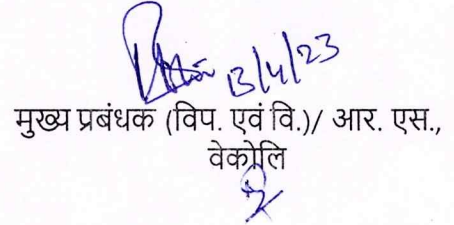 13/4/23
मुख्य प्रबंधक (विप. एवं वि.)/ आर. एस.,
वेकोलि